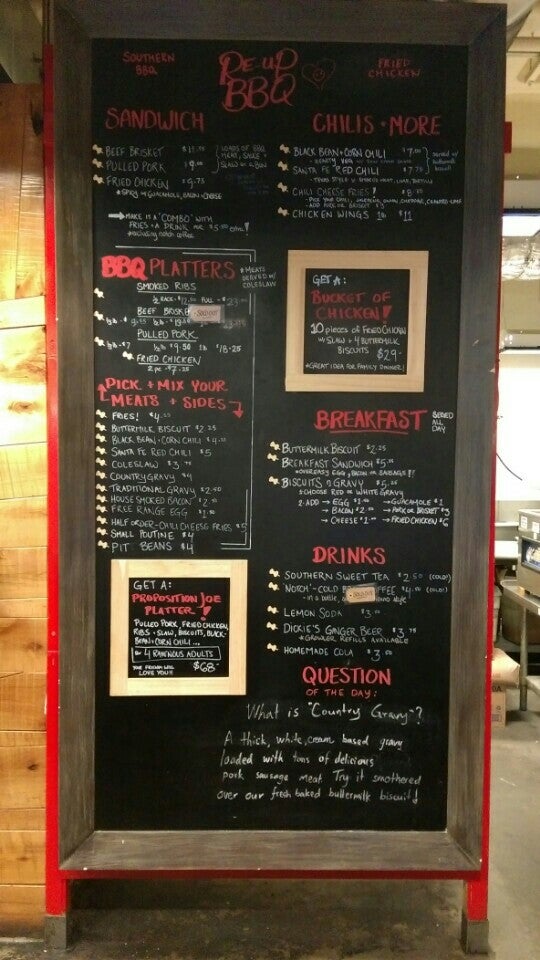 SOUTHERN
BBQ
RE-UP
BBQ
FRIED
CHICKEN
SANDWICH
BEEF BRISKET
PULLED PORK 9.00
FRIED CHICKEN $9.75
LOADS OF BBQ
MEAT, SAUCE +
SLAW ON A BUN
MAKE IS A "COMBO" WITH
FRIES + A DRINK FOR $5.00
*excluding notch coffee
CHILIS + MORE
BLACK BEAN + CORN CHILI $7.00
SANTA FE RED CHILI $7.75
served w/
buttermilk
biscuit
CHILI CHEESE FRIES!
CHICKEN WINGS 1lb $11
BBQ PLATTERS
*MEATS
SERVED w/
COLESLAW
SMOKED RIBS
1/2 RACK
BEEF BRISKE
SOLD OUT
PULLED PORK
1/4lb - $7 1/2lb $9.50 1lb $18.25
FRIED CHICKEN
2 pc - $7.25
PICK + MIX YOUR
MEATS + SIDES
FRIES!
BUTTERMILK BISCUIT $2.25
BLACK BEAN + CORN CHILI
SANTA FE RED CHILI $5
COLESLAW
COUNTRY GRAVY $4
TRADITIONAL GRAVY $2.50
HOUSE SMOKED BACON
FREE RANGE EGG
HALF ORDER - CHILI CHEESE FRIES $5
SMALL POUTINE $4
PIT BEANS $4
GET A:
BUCKET OF
CHICKEN!
10 pieces of FRIED CHICKEN
w/ SLAW + 4 BUTTERMILK
BISCUITS
$29-
*GREAT IDEA FOR FAMILY DINNER!
BREAKFAST
SERVED
ALL
DAY
BUTTERMILK BISCUIT $2.25
BREAKFAST SANDWICH
*OVER EASY EGG, BACON OR SAUSAGE!!
BISCUITS n GRAVY
*CHOOSE RED OR WHITE GRAVY
ADD → EGG → GUACAMOLE $1
→ BACON → PORK OR BRISKET $3
→ CHEESE → FRIED CHICKEN $6
DRINKS
SOUTHERN SWEET TEA $2.50 (COLD!)
'NOTCH' - COLD BR FFEE $4.00 (COLD!)
SOLD OUT
LEMON SODA $3.00
DICKIE'S GINGER BEER $3.75
*GROWLER REFILLS AVAILABLE
HOMEMADE COLA $3.00
GET A:
PROPOSITION JOE
PLATTER!
PULLED PORK, FRIED CHICKEN,
RIBS + SLAW, BISCUITS, BLACK-
BEAN + CORN CHILI...
4 RAVENOUS ADULTS
YOUR FRIENDS WILL
LOVE YOU!!
$68-
QUESTION
OF THE DAY:
What is "Country Gravy"?
A thick, white, cream based gravy
loaded with tons of delicious
pork sausage meat. Try it smothered
over our fresh baked buttermilk biscuit!